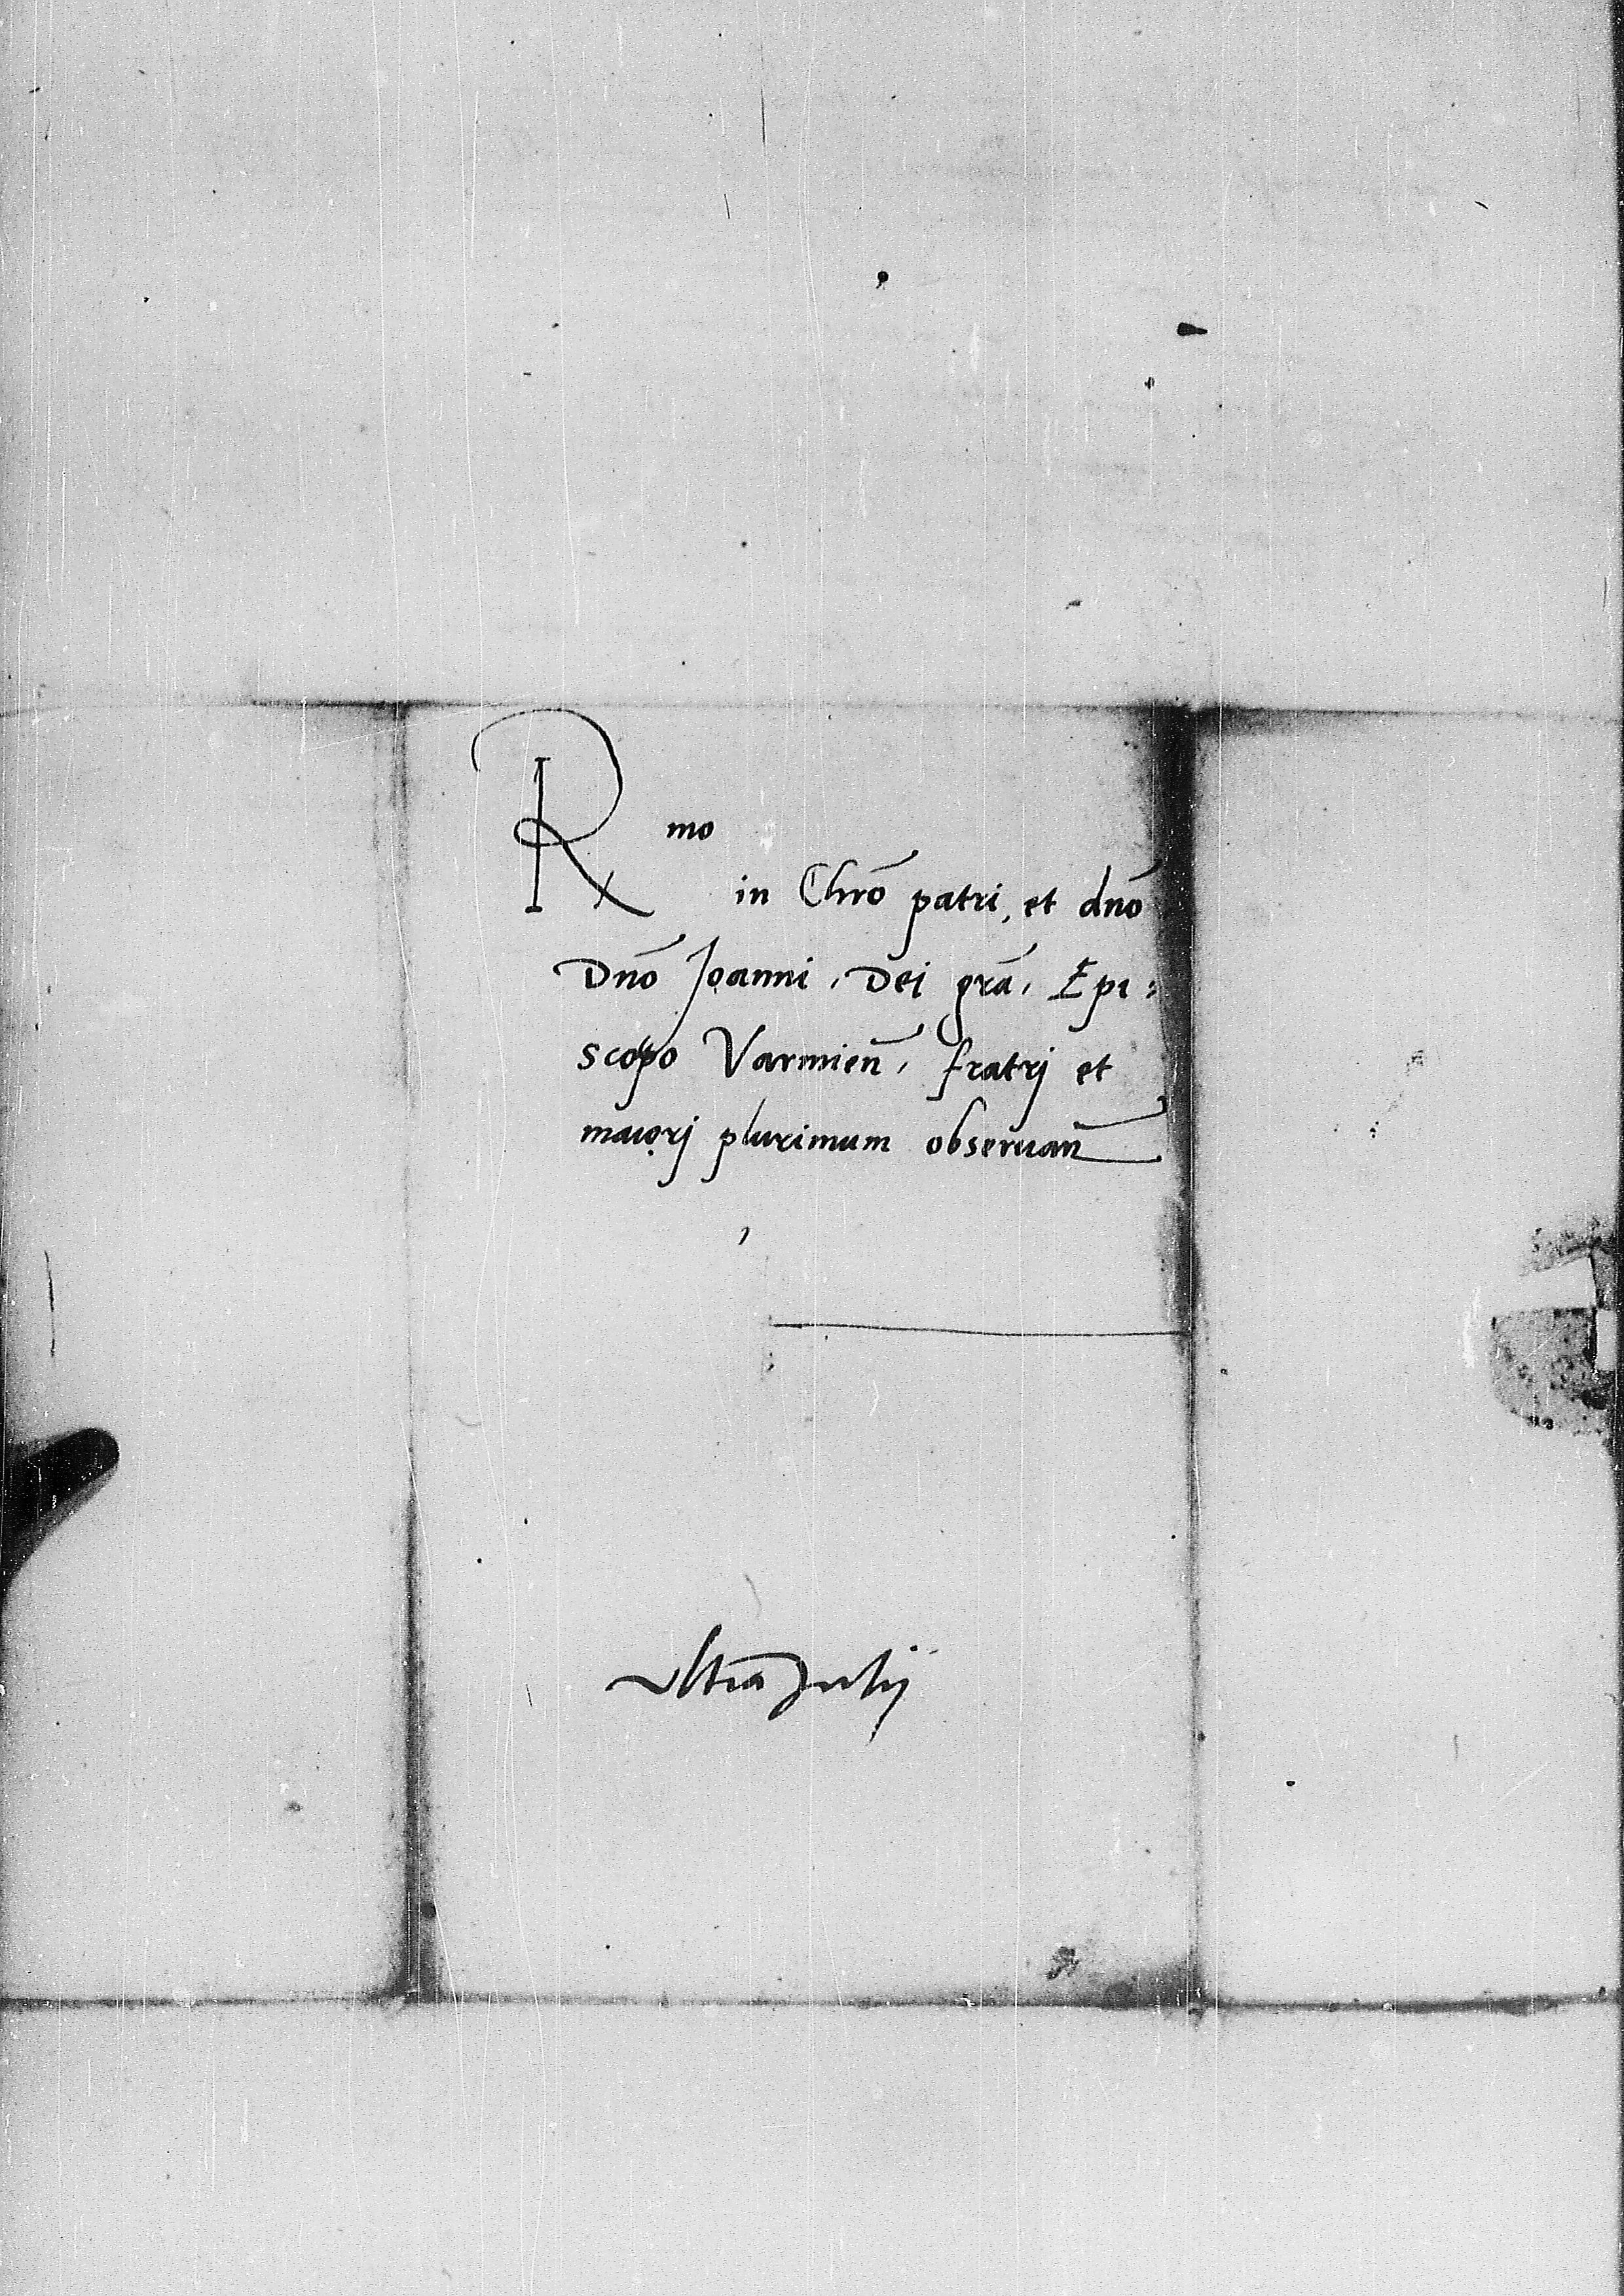 Rmo
in Chrō patri, et dnō
Dnō Joanni, Dei grā, Epi:
scopo Varmien̄, fratrj et
maiorj plurimum obseruan̄
vltīa Julij